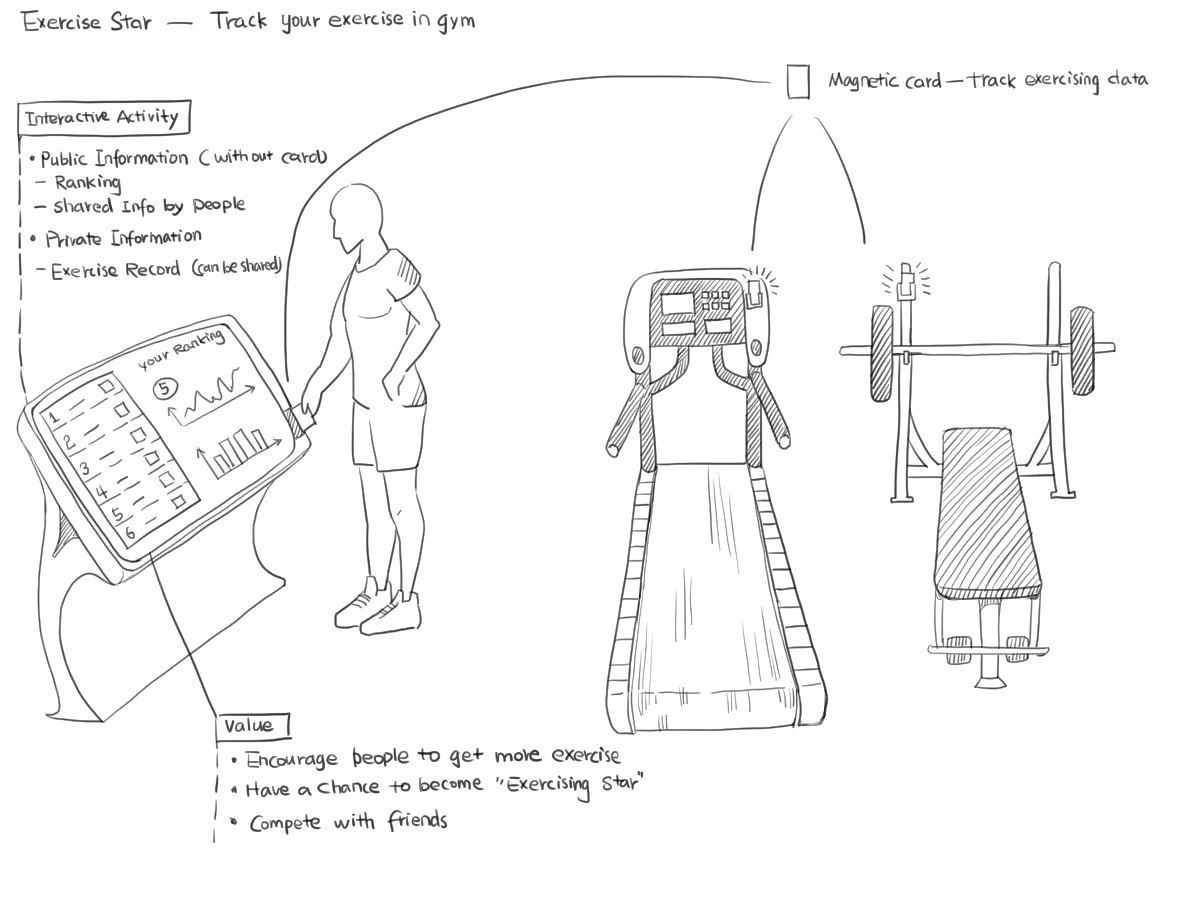 Exercise Star — Track your exercise in gym
Magnetic card — track exercising data
Interactive Activity
• Public Information (without card)
– Ranking
– Shared Info by people
• Private Information
– Exercise Record (can be shared)
your Ranking
5
1
2
3
4
5
6
Value
• Encourage people to get more exercise
• Have a chance to become "Exercising Star"
• Compete with friends